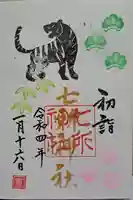 初詣
七所神社
令和四年
一月十六日